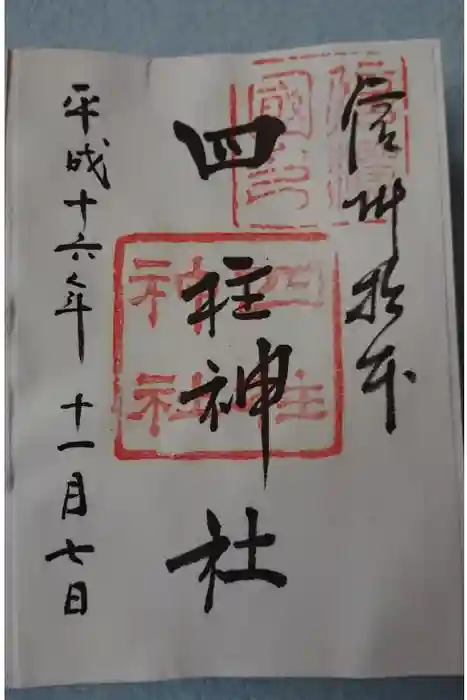 信州松本
四柱神社
平成十六年十一月七日
四柱
神社